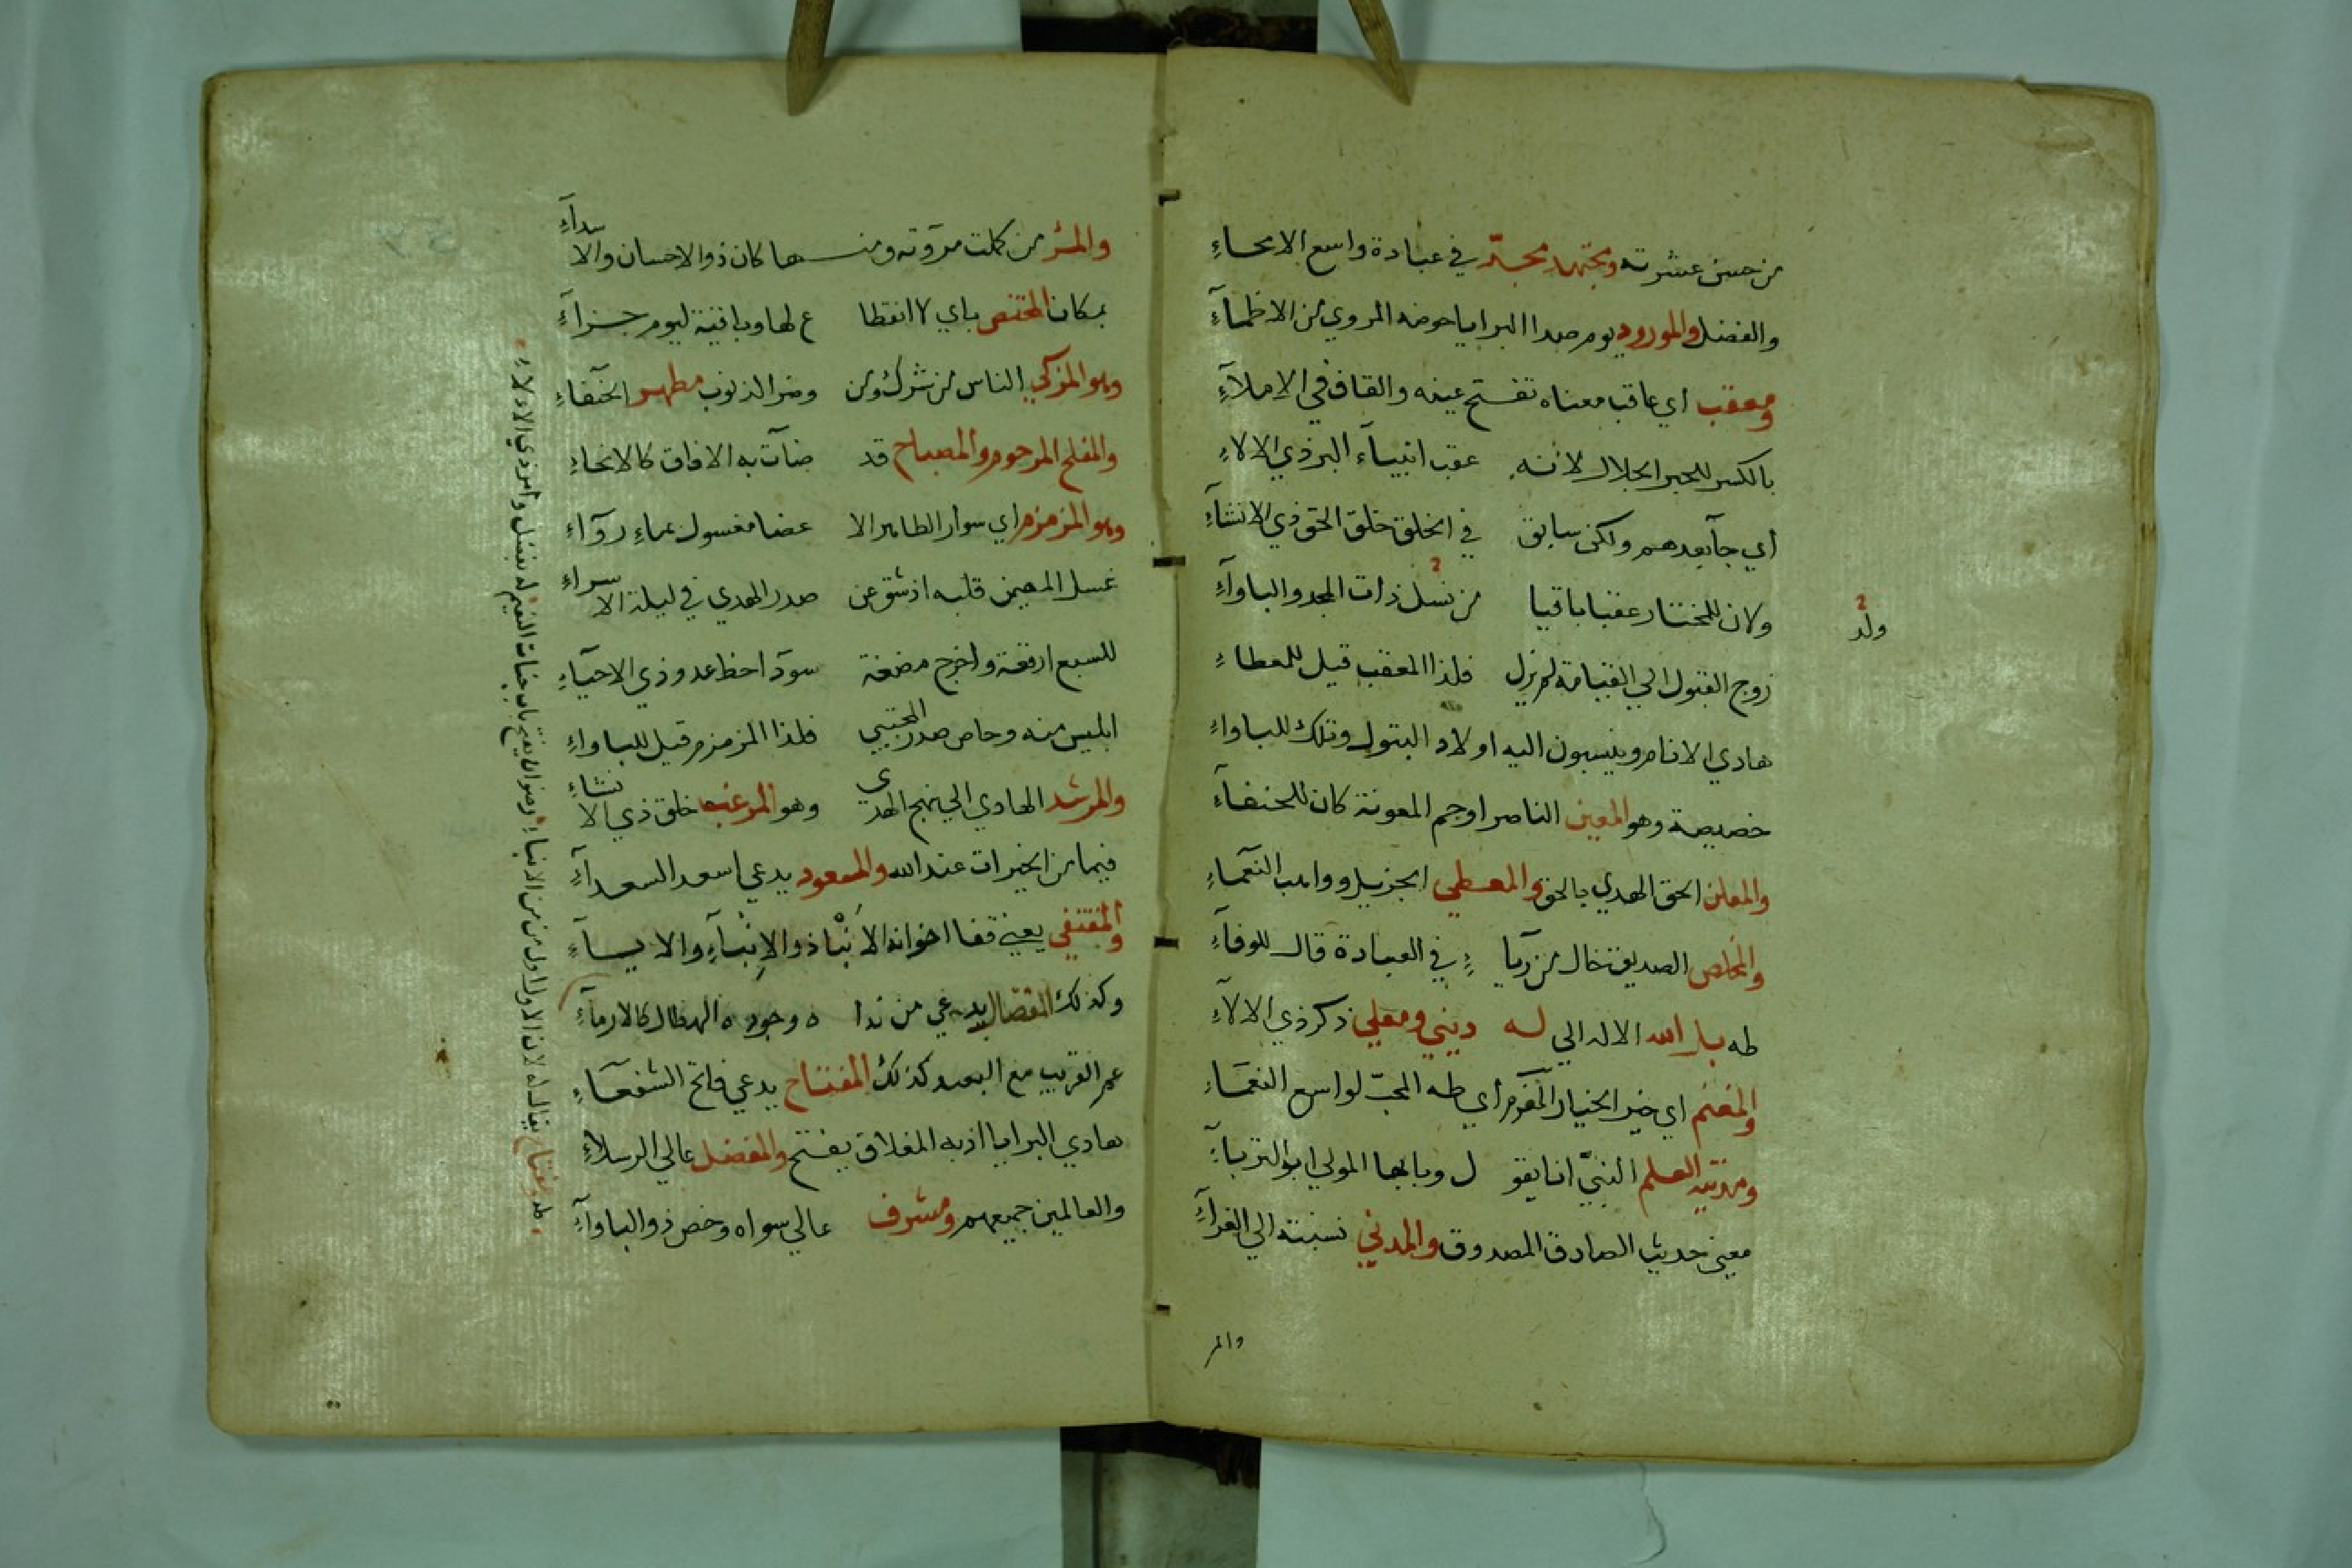 من حسن عشرته ومجتهد مجد في عبادة واسع الامحاء
والفضل والمورود يوم صدا البرايا حوضه المروي من الاظماء
ومعقب اي عاقب معناه تفتح عينه والقاف في الاملآء
بالكسر للحبر الجلال لانه عقب انبيآء البر ذي الالاء
أي جآ بعدهم ولكن سابق في الخلق خلق الحق ذي الانشآء
ولان للمختار عقبا باقيا من نسل ذات المجد والباوآء
ولد
زوج القبول الي القيامة لم يزل فلذا المعقب قيل للمعطاء
هادي الانام وينسبون اليه اولاد البتول وتلك للباواء
خصيصة وهو المعين الناصر اوجم المعونة كان للحنفآء
والمعلن الحق الهدي بالحق والمعطي الجزيل وواهب النعماء
والمخلص الصديق خال من ريآ ء في العبادة قال للوفآء
طه بار الله الاله الي له ديني ومعلي ذكر ذي الالآء
والمغنم اي خير الخيار المقرم أي طه المحب لواسع النعماء
ومدينة العلم النبي انا يقو ل وبابها المولي ابو التربآء
معنى حديث الصادق المصدوق والمدني نسبته الي الغرآء
والمر
والمرء من كملت مروته ومنها كان ذو الاحسان والاسدآء
بمكان المختص باي لا انقطا ع لها وباقية ليوم جزآء
وهو المزكي الناس من شرك ومن وضر الذنوب مطهر الحنفاء
والمفلح المرحوم والمصباح قد ضآت به الافاق كالانحاء
وهو المزمزم اي سوار الطاهر الا عضا مغسول بماء روآء
غسل المهيمن قلبه اذ شق عن صدر الهدي في ليلة الاسراء
للسبع ارقعة واخرج مضغة سودا حظ عدو ذي الاحيآء
ابليس منه وحاص صدر المجتبي فلذا المزمزم قيل للباواء
والمرشد الهادي الي نهج الهدي وهو المرغب خلق ذي الانشاء
فيما من الخيرات عند الله والمسعود يدعي اسعد السعدآء
والمقتفي يعني قفا اخوانه الانبا ذو الانبآء والايسآء
وكذلك المفضال يدعي من ندا ه وجوده الهطال كالارمآء
عم القريب مع البعيد كذلك المفتاح يدعي فاتح الشفعآء
هادي البرايا اذ به المغلاق يفتح والمفضل عالي الرسلاء
والعالمين جميعهم ومشرف عالي سواه وخص ذو الباوآء
طه مفتاح يقال له لان الاول من الانبياء رضوان يفتح باب جنات النعيم له بفضل وامر ذي الالاء